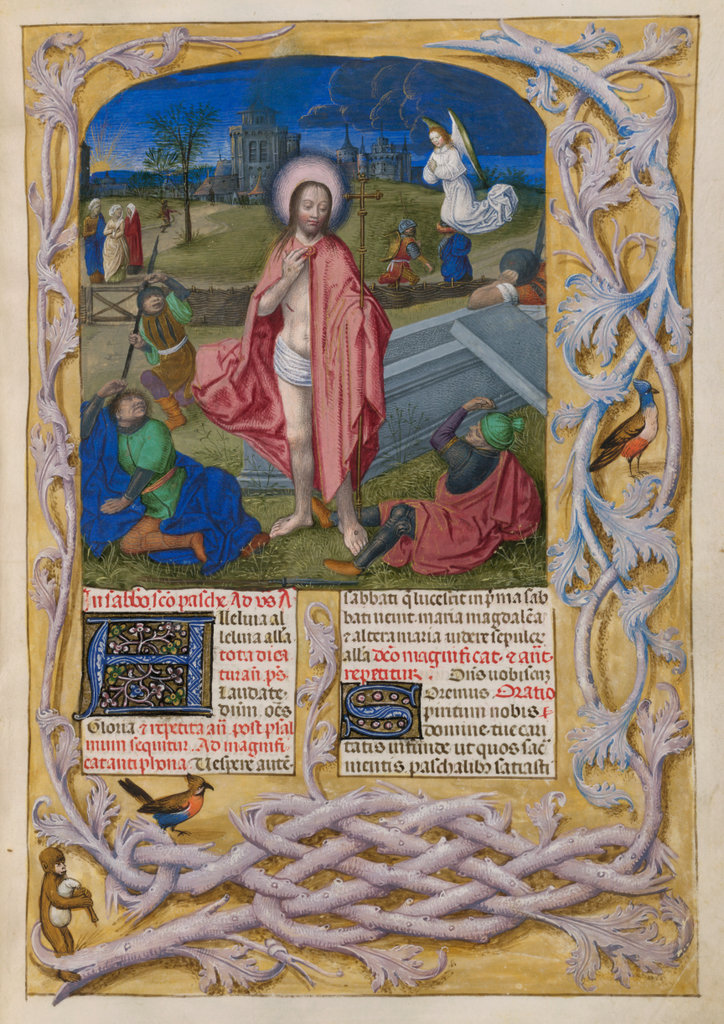 In sabbo sco pasche Ad vs A
Alleluia al
leluia alla
tota dicit
tur an̄. ps̄.
Laudate
dūm. oēs
Gloria & repetita an̄ post psal
mum sequitur. Ad magnifi
cat antiphona. Uespere autē
sabbati q̄ lucescit in p̄ma sab
bati uenit maria magdalēa
& altera maria uidere sepulcr̄
alla dc̄o magnificat. & ant̄.
repetitur. Dn̄s uobiscū
Oremus. Oratio
Spiritum nobis
domine tue cari
tatis infunde ut quos sac̄
mentis paschalibꝰ satiasti